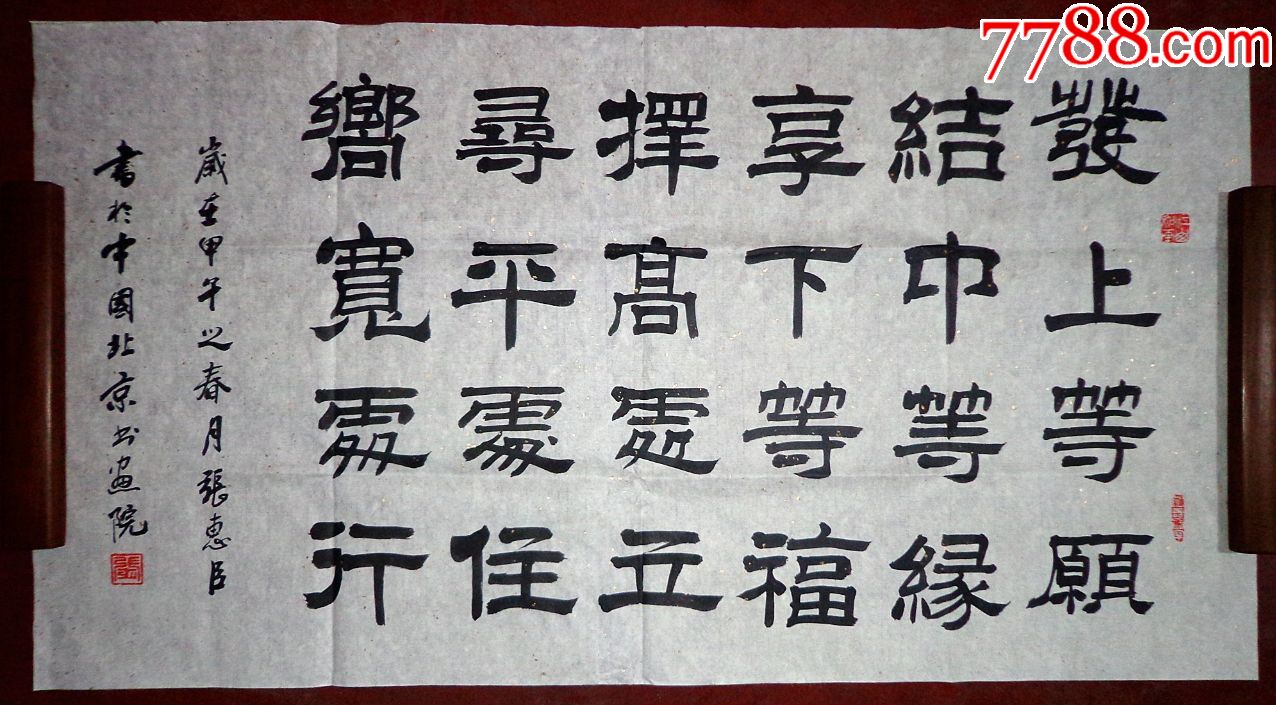 7788.com
發上等願
結中等緣
享下等福
擇高處立
尋平處住
嚮寬處行
歲在甲午之春月張惠臣
書於中國北京书画院